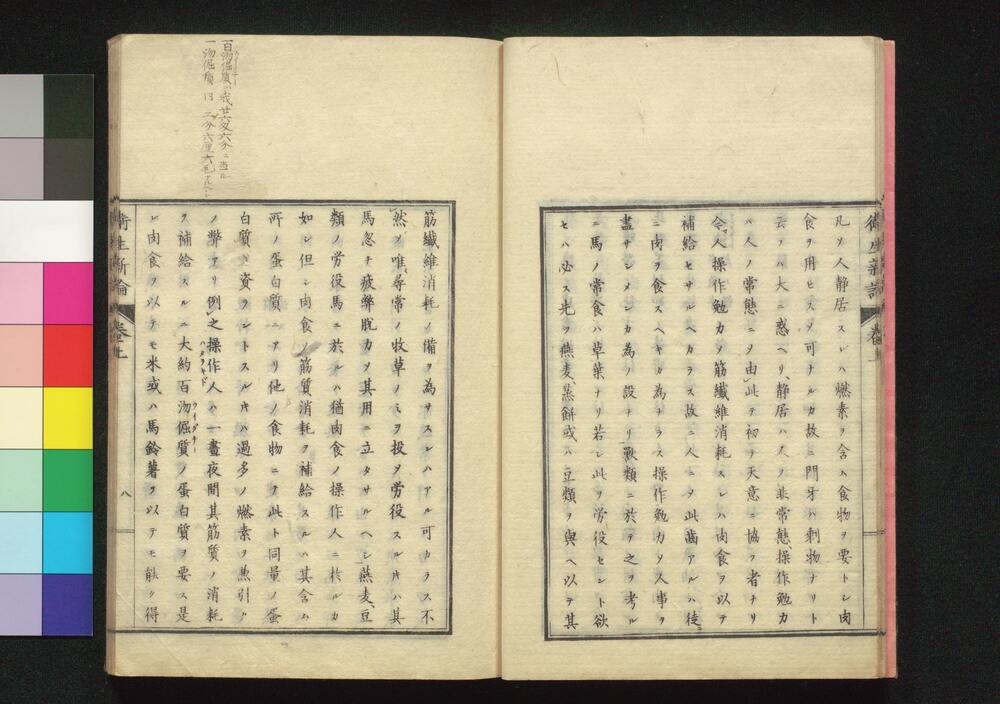 凡ソ人静居スレハ燃素ヲ含ム食物ヲ要トシ肉
食ヲ用ヒスノ可ナルカ故ニ門牙ハ剰物ナリト
云フハ大ニ惑ヘリ、静居ハ人ノ非常態操作勉力
ハ人ノ常態ニ〆由此テ初テ天意ニ協フ者ナリ
今人操作勉力〆筋纎維消耗スレハ肉食ヲ以テ
補給セサルヘカラス故ニ人ニ〆此齒アルハ徒
ニ肉ヲ食スヘキカ為ナラス操作勉力〆人事ヲ
盡サシメンカ為ノ設ナリ獸類ニ於テ之ヲ考ル
ニ馬ノ常食ハ草葉ナリ若シ此ヲ労役セント欲
セハ必ス先ツ燕麦、蒸餅或ハ豆類ヲ與ヘ以テ其
筋纎維消耗ノ備ヲ為サスンハアル可カラス不
然〆唯尋常ノ牧草ノミヲ投〆労役スル片ハ其
馬忽チ疲弊脱力〆其用ニ立タサルヘシ燕麦、豆
類ノ労役馬ニ於ルハ猶肉食ノ操作人ニ於ルカ
如シ但シ肉食ノ筋質消耗ヲ補給スルハ其含ム
所ノ蛋白質ニアリ他ノ食物ニ〆此ト同量ノ蛋
白質ヲ資ラントスル片ハ過多ノ燃素ヲ兼引ク
ノ弊アリ例之操作人ハ一晝夜間其筋質ノ消耗
ヲ補給スルニ大約百沕倔質ノ蛋白質ヲ要ス是
レ肉食ヲ以テモ米或ハ馬鈴薯ヲ以テモ能ク得
百沕倔質ハ我廿六文六分ニ当ル
一沕倔質ハ二分六厘六毛
衛生新論
卷上
八